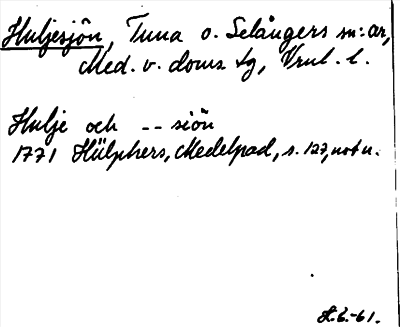 Huljesjön, Tuna o. Selångers sn:ar,
Med. v. doms tg, Vrnl. l.
Hulje och -- siön
1771 Hülphers, Medelpad, s. 127, not u.
H.G.-61.